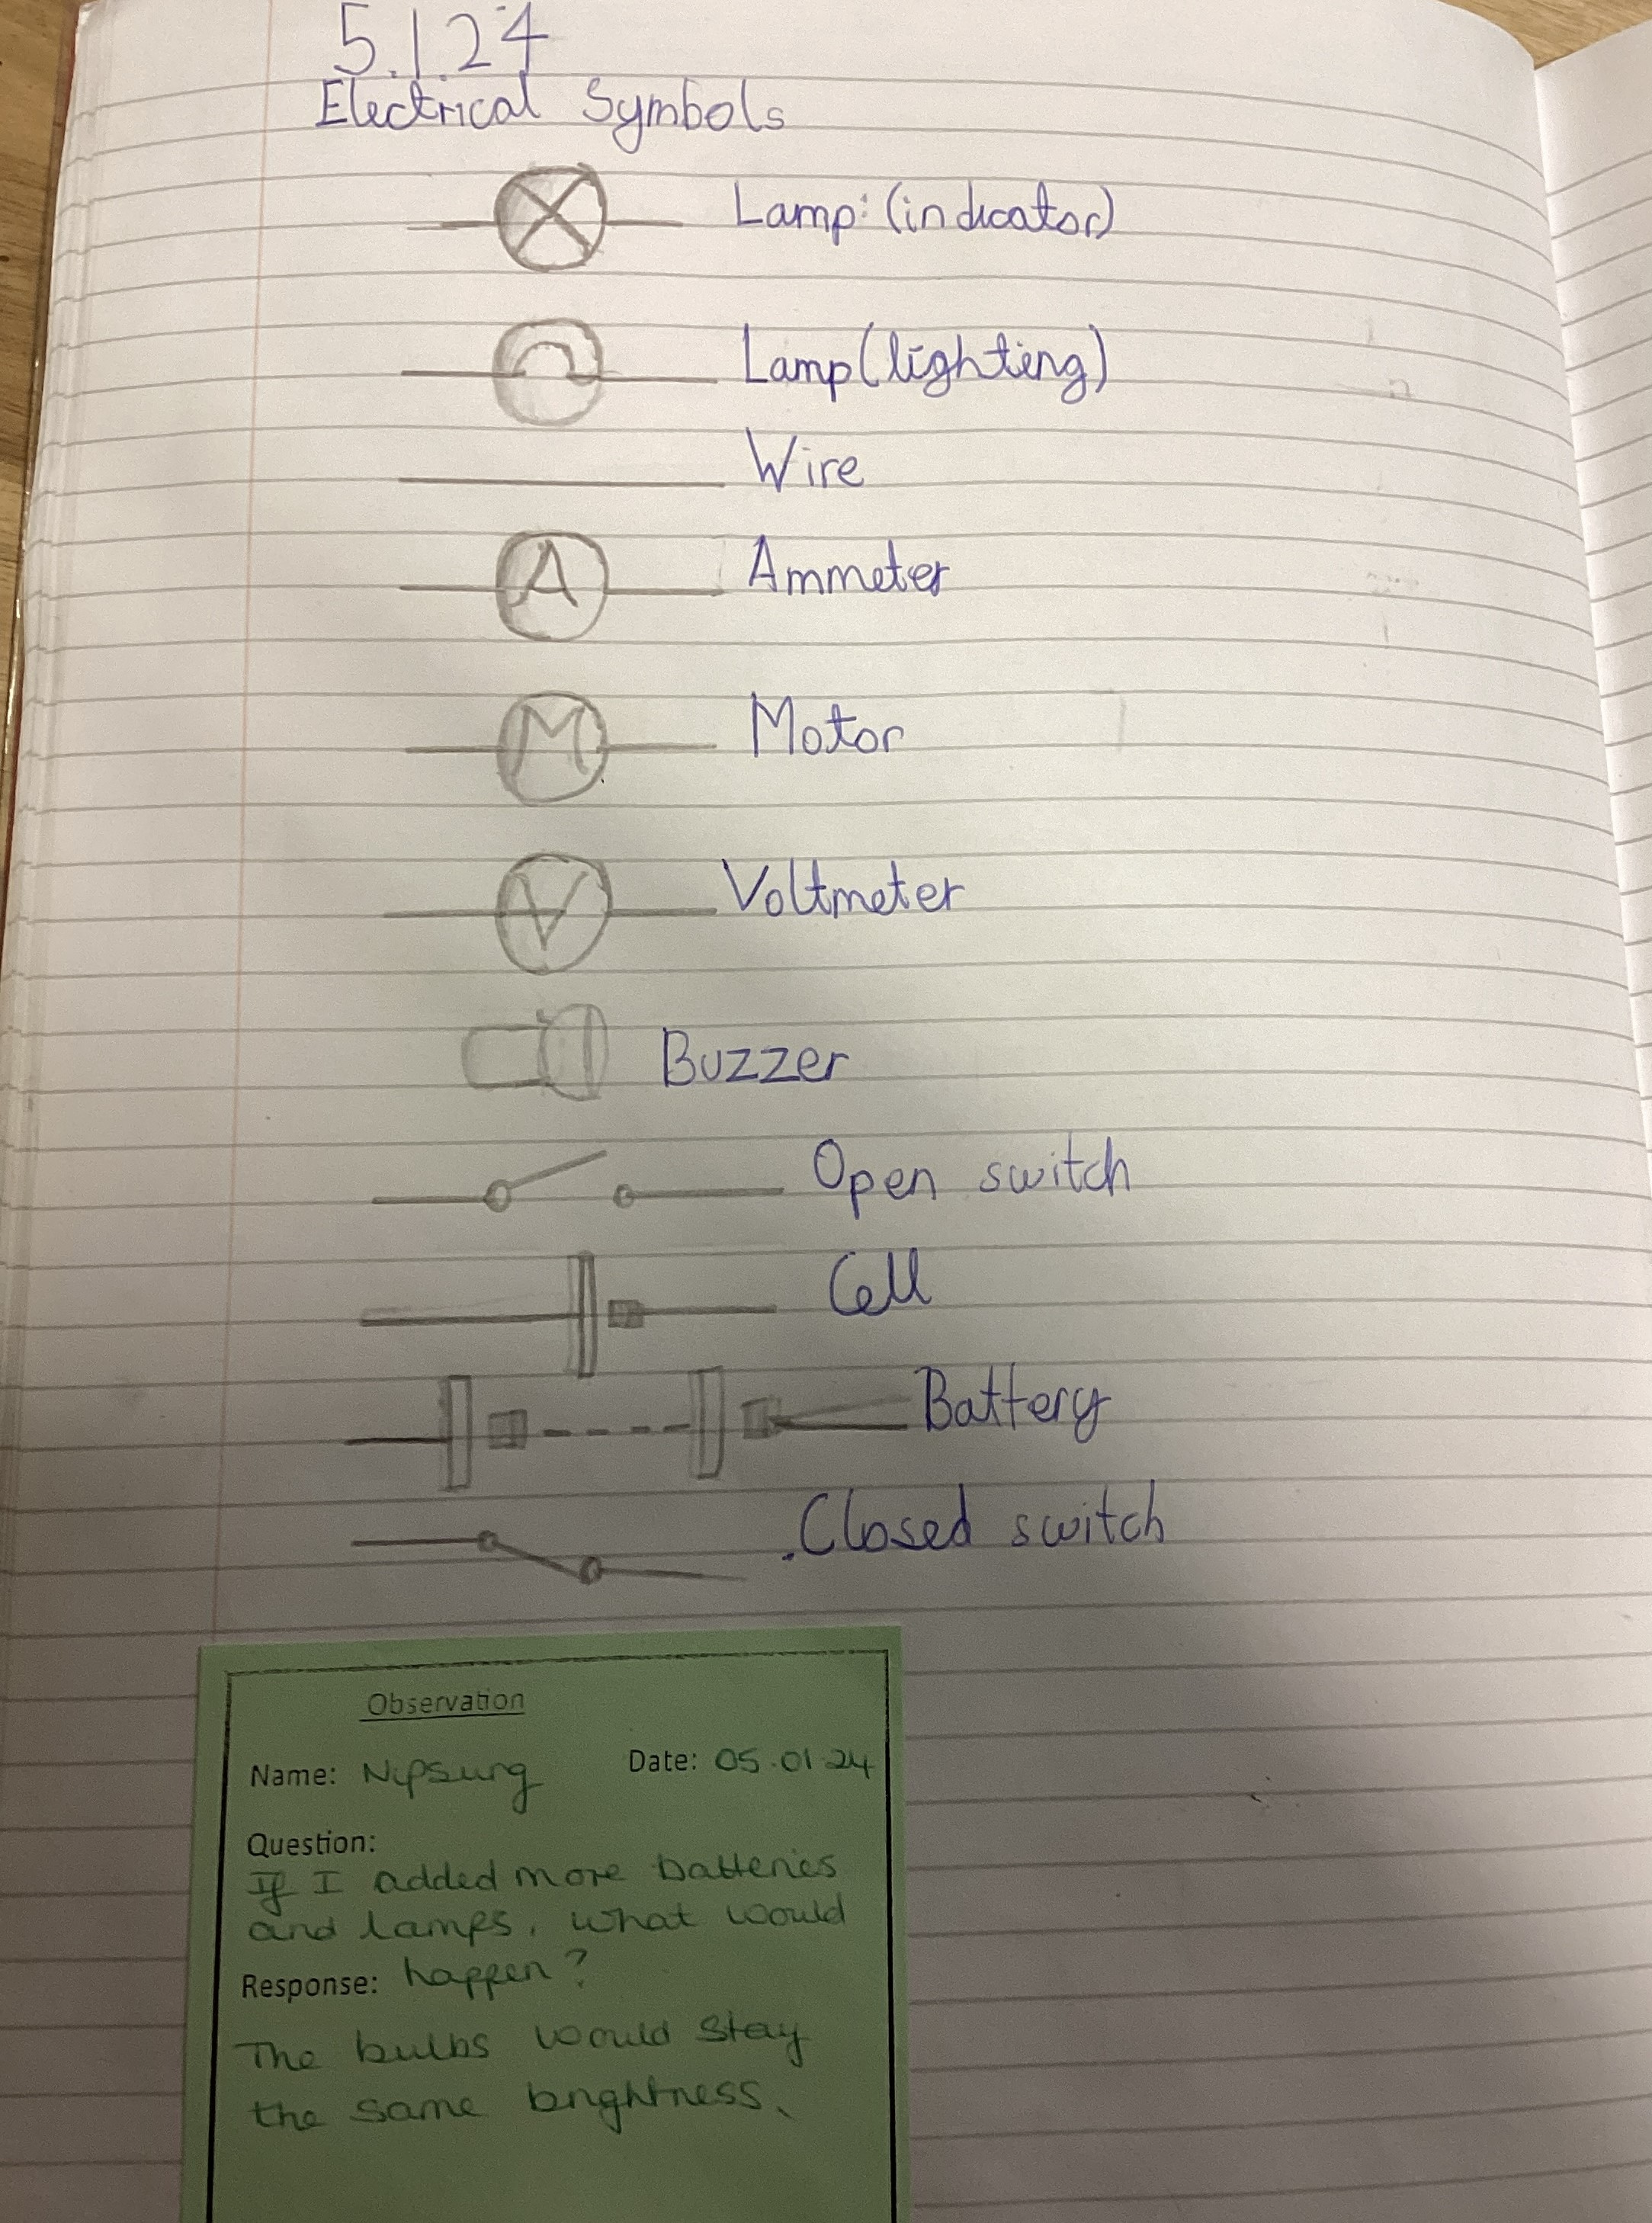 5.1.24
Electrical Symbols
Lamp: (indicator)
Lamp (lighting)
Wire
A Ammeter
M Motor
V Voltmeter
Buzzer
Open switch
Cell
Battery
Closed switch
Observation
Name: Nipsung Date: 05.01.24
Question:
If I added more batteries
and lamps, what would
Response: happen?
The bulbs would stay
the same brightness.